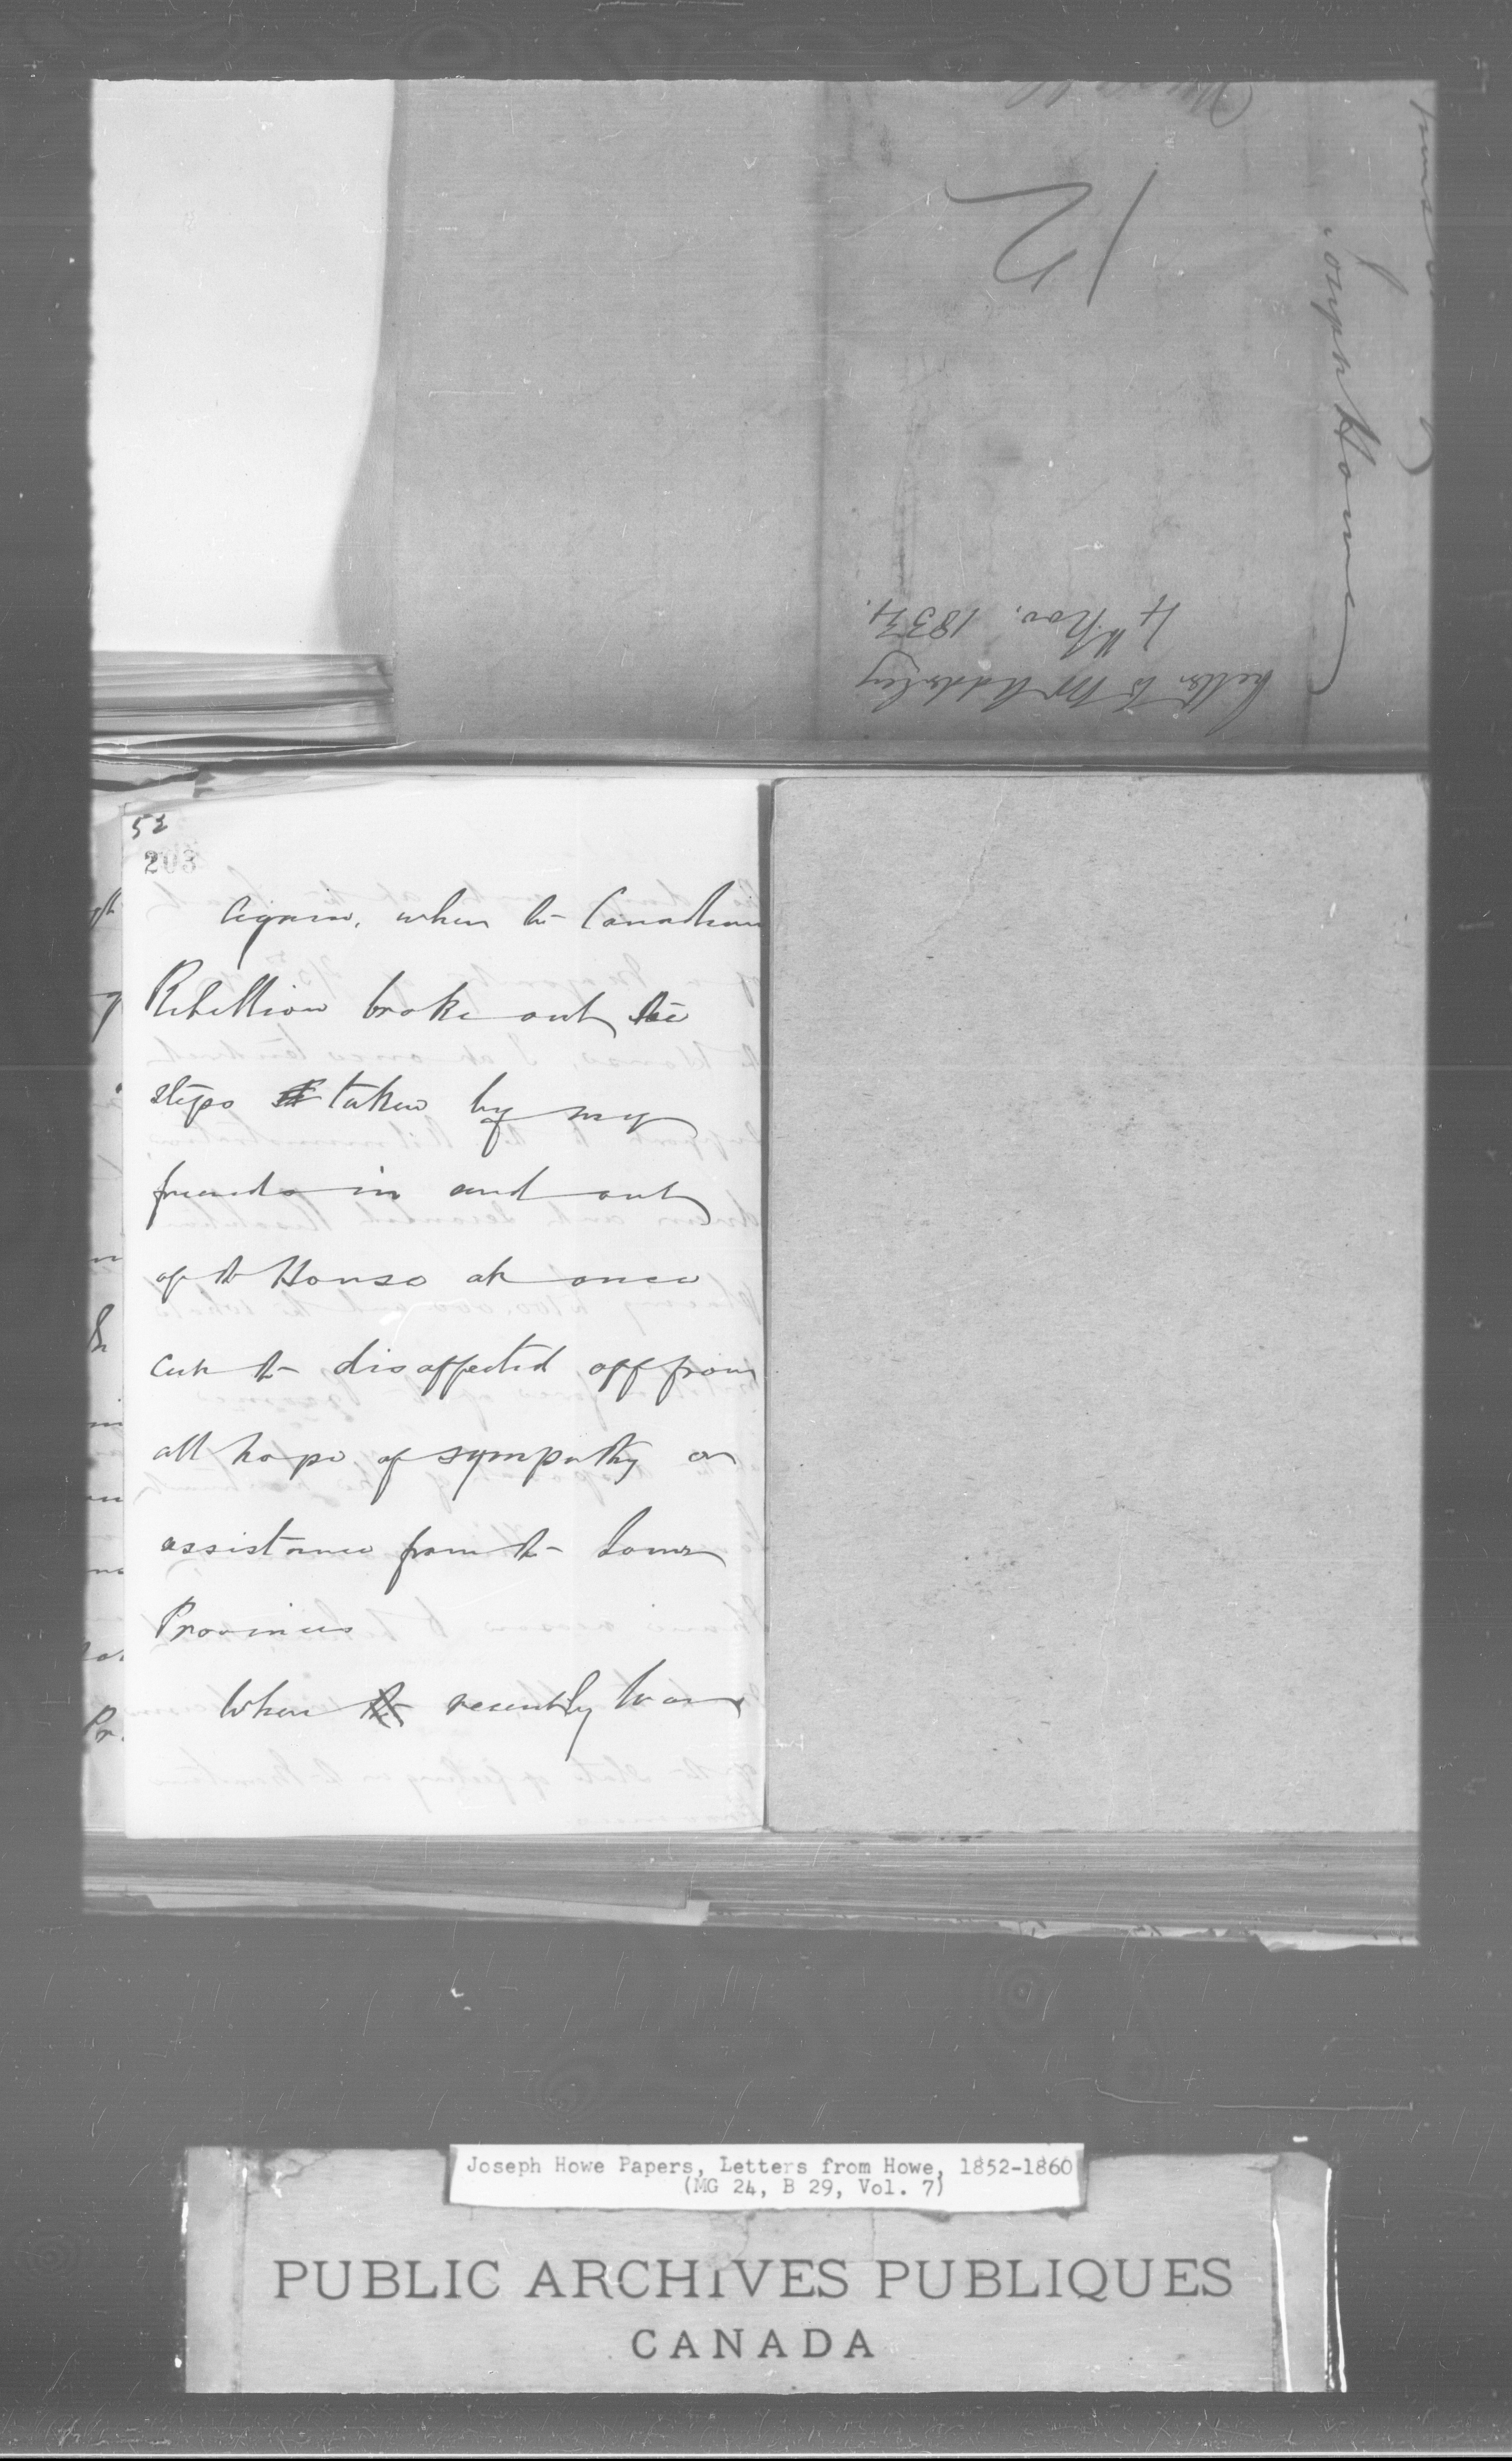 12
Joseph Howe
Letter to Mr Adderley
4th Nov. 1834.
52
203
Again, when the Canadian
Rebellion broke out the
steps taken by my
friends in and out
of the House at once
cut the disaffected off from
all hope of sympathy or
assistance from the Lower
Provinces
When the recently
Joseph Howe Papers, Letters from Howe, 1852-1860
(MG 24, B 29, Vol. 7)
PUBLIC ARCHIVES PUBLIQUES
CANADA